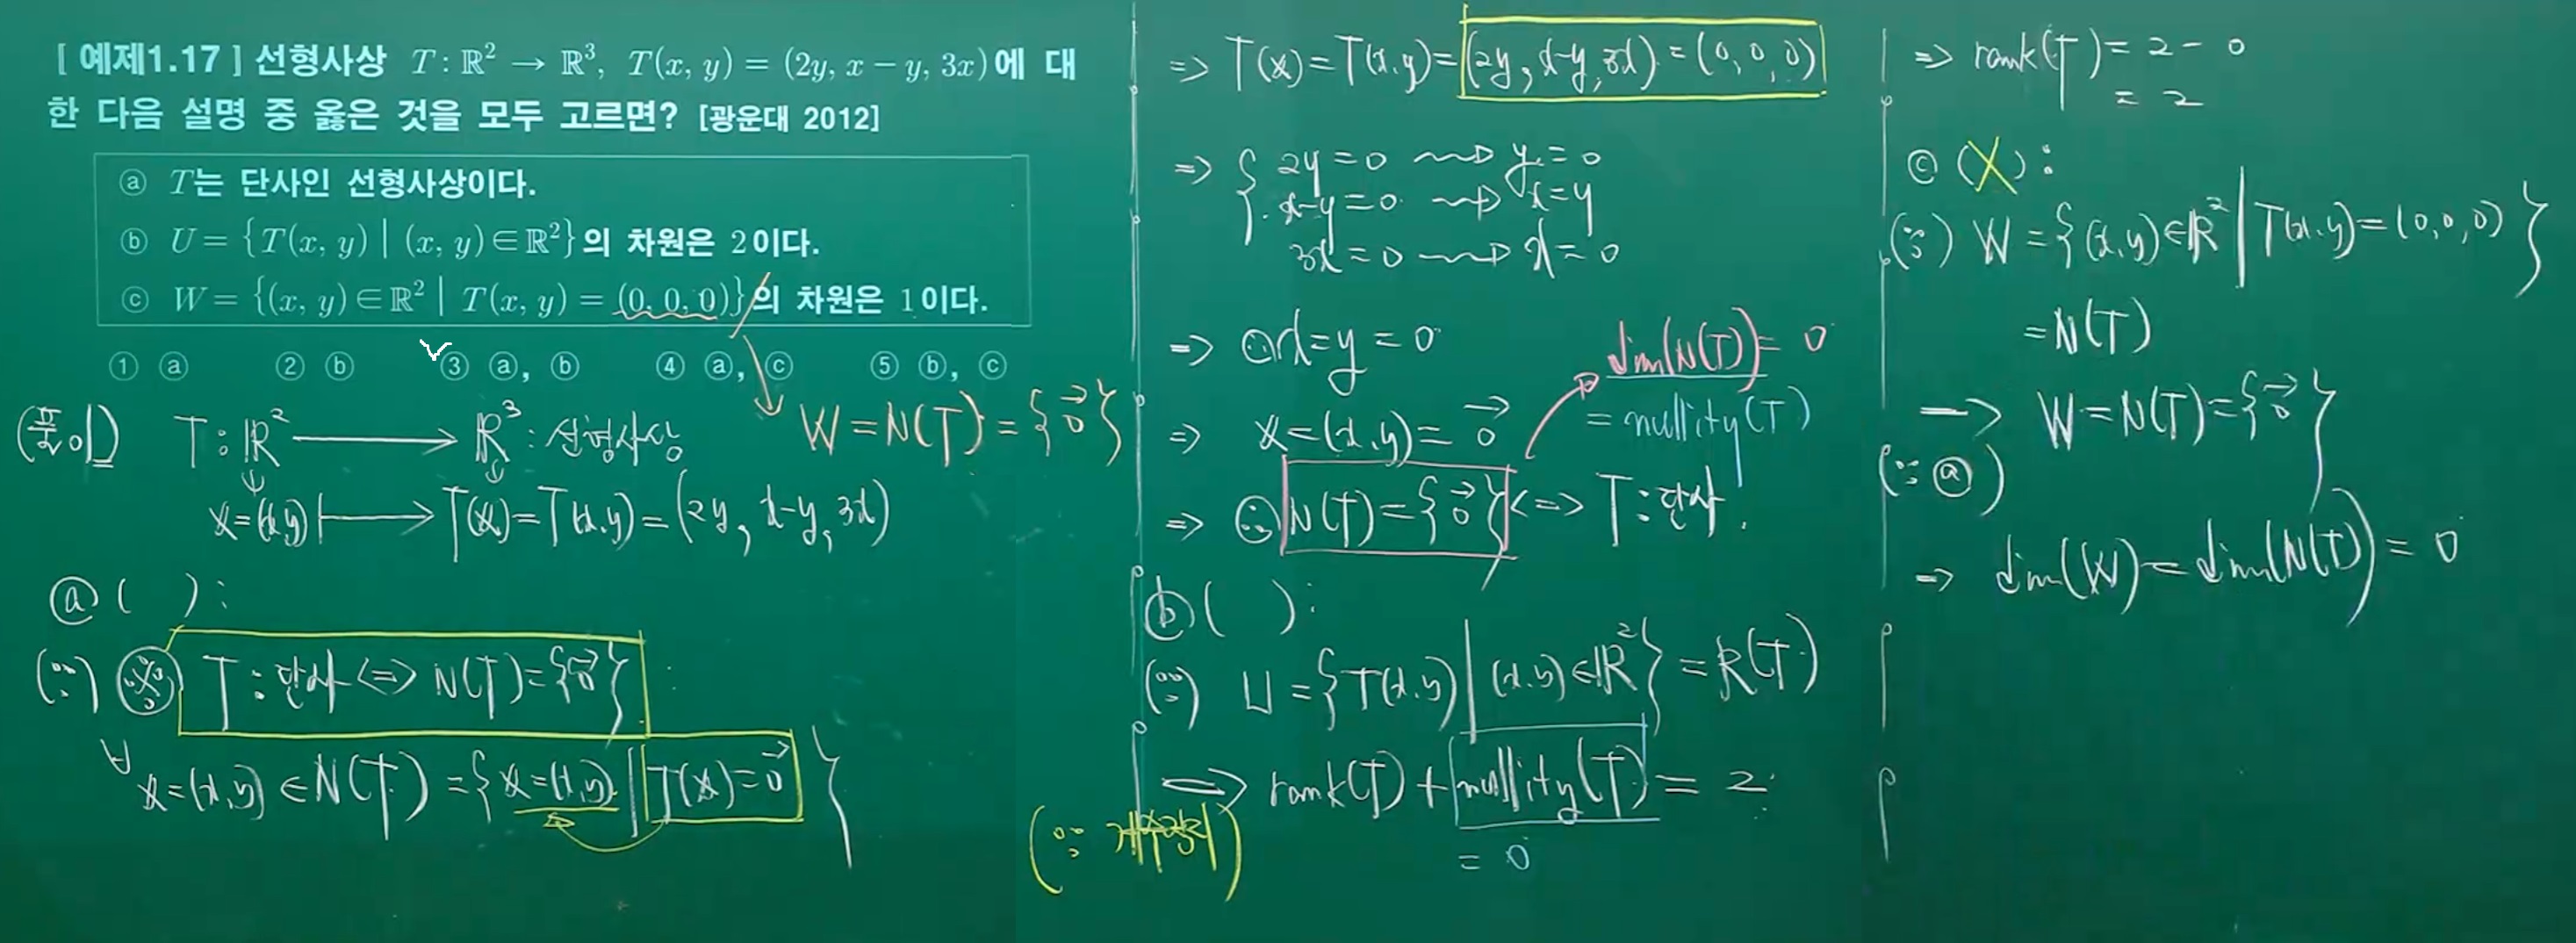 [ 예제1.17 ] 선형사상 T : ℝ² → ℝ³, T(x, y) = (2y, x − y, 3x)에 대
한 다음 설명 중 옳은 것을 모두 고르면? [광운대 2012]
ⓐ T는 단사인 선형사상이다.
ⓑ U = {T(x, y) | (x, y)∈ℝ²}의 차원은 2이다.
ⓒ W = {(x, y)∈ℝ² | T(x, y) = (0, 0, 0)}의 차원은 1이다.
① ⓐ ② ⓑ ③ ⓐ, ⓑ ④ ⓐ, ⓒ ⑤ ⓑ, ⓒ
W = N(T) = {0⃗}
(풀이) T : ℝ² → ℝ³ : 선형사상
x = (x, y) ↦ T(x) = T(x, y) = (2y, x−y, 3x)
ⓐ ( ) :
(∵) ※ T : 단사 <=> N(T) = {0⃗}
∀x = (x, y) ∈ N(T) = {x = (x, y) | T(x) = 0⃗}
=> T(x) = T(x, y) = (2y, x−y, 3x) = (0, 0, 0)
=> { 2y = 0 ⇝ y = 0
x−y = 0 ⇝ x = y
3x = 0 ⇝ x = 0
=> ∴ x = y = 0
dim(N(T)) = 0
= nullity(T)
=> x = (x, y) = 0⃗
=> ∴ N(T) = {0⃗} <=> T : 단사.
ⓑ ( ) :
(∵) U = {T(x, y) | (x, y) ∈ ℝ²} = R(T)
=> rank(T) + nullity(T) = 2
= 0
=> rank(T) = 2 − 0
= 2
ⓒ (X) :
(∵) W = {(x, y) ∈ ℝ² | T(x, y) = (0, 0, 0)}
= N(T)
=> W = N(T) = {0⃗}
(∵ ⓐ)
=> dim(W) = dim(N(T)) = 0